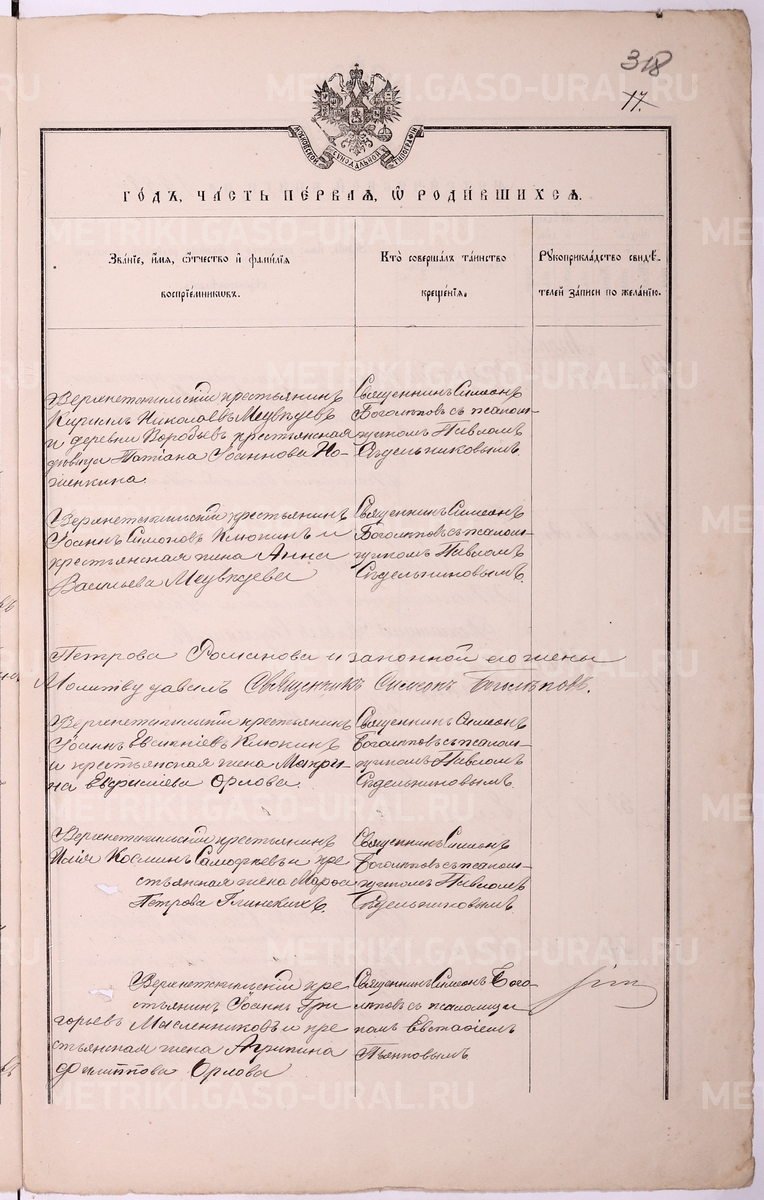 318
17.
METRIKI.GASO-URAL.RU
МОСКОВСКОЙ СѴНОДАЛЬНОЙ ТИПОГРАФІИ
ГОДЪ, ЧАСТЬ ПЕРВАЯ, Ѡ РОДИВШИХСЯ.
Званіе, имя, ѻтчество и фамилія
воспріемниковъ.
Кто совершалъ таинство
крещенія.
Рукоприкладство свидѣ-
телей записи по желанію.
Верхнетагильскій крестьянинъ
Кириллъ Николаевъ Медвѣдевъ
и деревни Воробьевъ крестьянская
дѣвица Татіана Іоаннова Но-
женкина.
Священникъ Симеонъ
Боголѣповъ съ псалом-
щикомъ Павломъ
Сѣдельниковымъ
Верхнетагильскій крестьянинъ
Іоаннъ Симоновъ Клюкинъ и
крестьянская жена Анна
Васильева Медвѣдева
Священникъ Симеонъ
Боголѣповъ съ псалом-
щикомъ Павломъ
Сѣдельниковымъ.
Петрова Романова и законной его жены
Молитву давалъ Священникъ Симеонъ Боголѣповъ.
Верхнетагильскій крестьянинъ
Іоаннъ Евсикніевъ Клюкинъ
и крестьянская жена Макри-
на Евфиміева Орлова.
Священникъ Симеонъ
Боголѣповъ съ псалом-
щикомъ Павломъ
Сѣдельниковымъ
Верхнетагильскій крестьянинъ
Илія Космин Самофѣевъ и кре-
стьянская жена Марѳа
Петрова Глинскихъ.
Священникъ Симеонъ
Боголѣповъ съ псалом-
щикомъ Павломъ
Сѣдельниковымъ
Верхнетагильскій кре-
стьянинъ Іоаннъ Гри-
горьевъ Масленниковъ и кре-
стьянская жена Агрипина
Филиппова Орлова
Священникъ Симеонъ Бого-
лѣповъ съ псаломщи-
комъ Евстафіемъ
Пьянковымъ